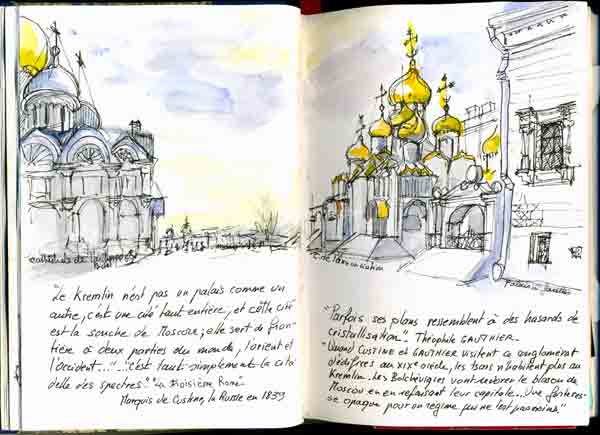 cathédrale de
"Le Kremlin n'est pas un palais comme un
autre, c'est une cité tout entière, et cette cité
est la souche de Moscou; elle sert de fron-
tière à deux parties du monde, l'orient et
l'occident..."..."C'est tout simplement la cita
delle des spectres." "La Troisième Rome"
Marquis de Custine, la Russie en 1839
Palais à facettes
"Parfois ses plans ressemblent à des hasards de
cristallisation". Théophile GAUTHIER.
Quand CUSTINE et GAUTHIER visitent ce conglomérat
d'édifices au XIXe siècle, les tsars n'habitent plus au
Kremlin. Les Bolchéviques vont redorer le blason de
Moscou en en refaisant leur capitale... Une forteres-
se opaque pour un régime qui ne l'est pas moins."